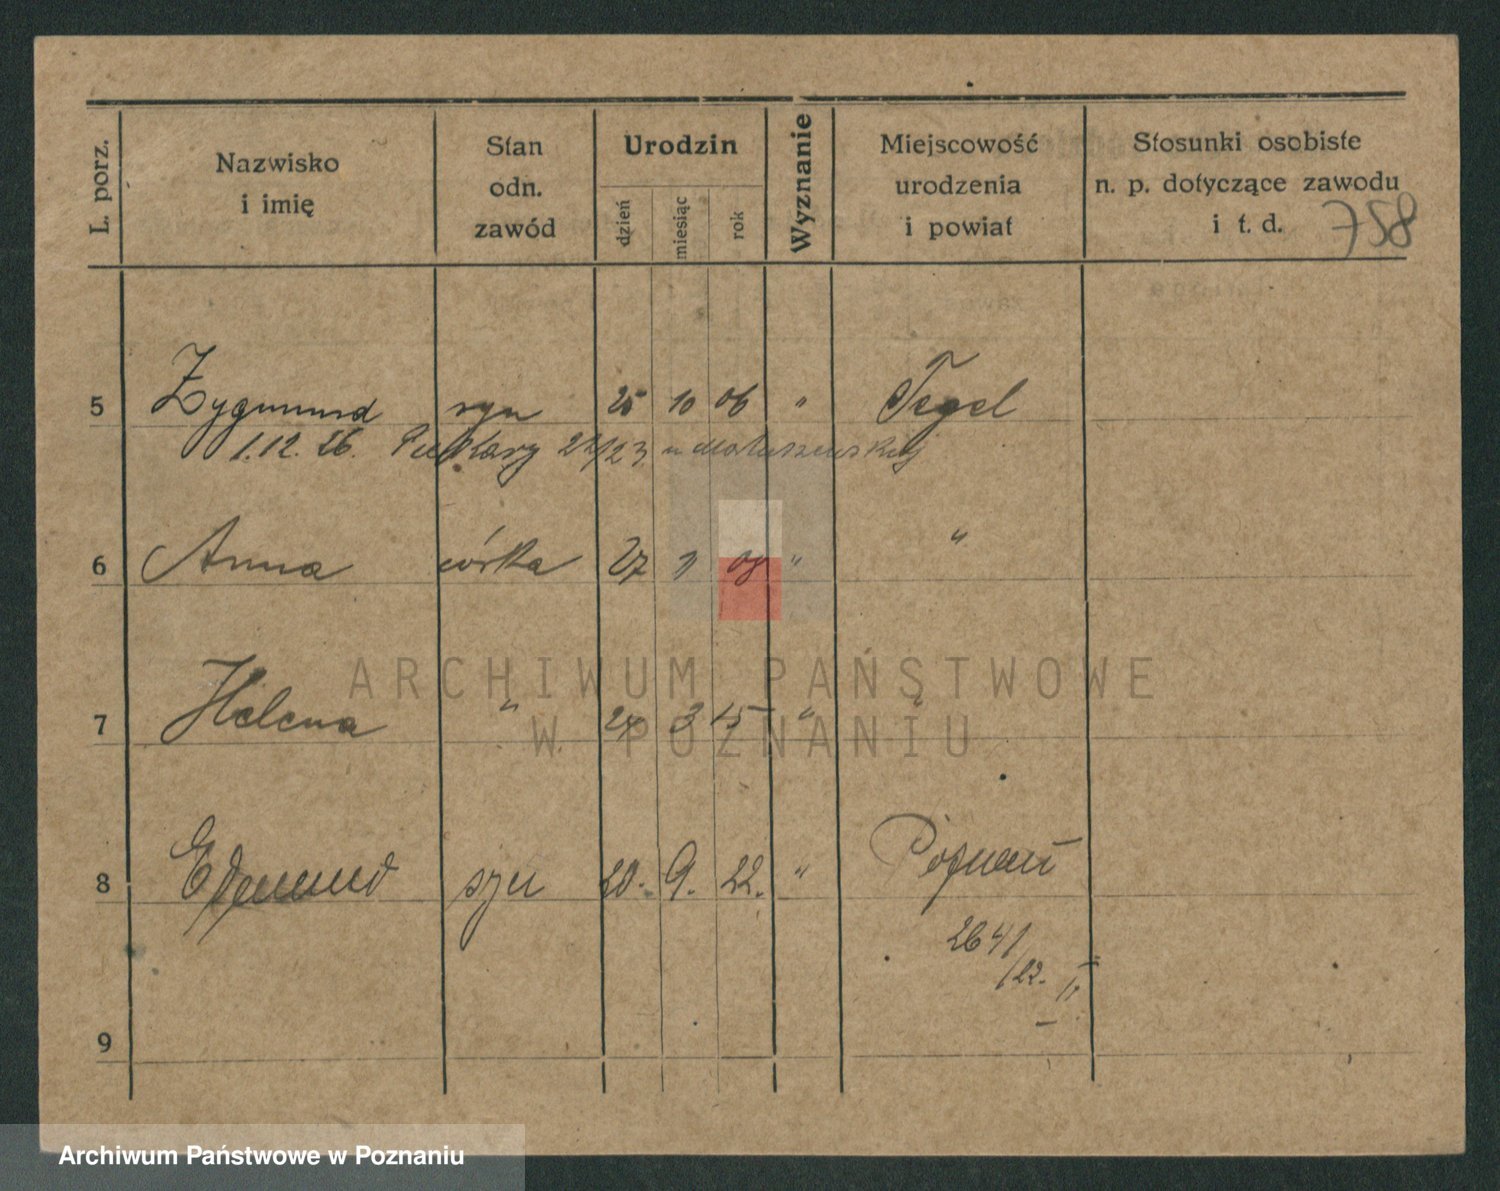 L. porz.
Nazwisko
i imię
Stan
odn.
zawód
Urodzin
dzień
miesiąc
rok
Wyznanie
Miejscowość
urodzenia
i powiat
Stosunki osobiste
n. p. dotyczące zawodu
i t. d.
758
5 Zygmund syn 25 10 06 " Tegel
1.12.26. Piekary 22/23 u Matuszewskiej
6 Anna córka 27 1 08 " "
7 Helena " 24 3 15 " "
8 Edmund syn 20. 9. 22. " Poznań
2641
/22.
9
ARCHIWUM PAŃSTWOWE
W POZNANIU
Archiwum Państwowe w Poznaniu